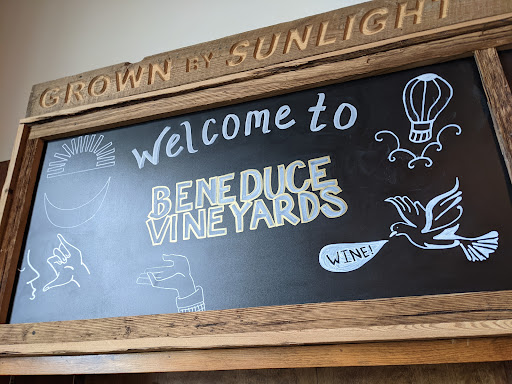 GROWN BY SUNLIGHT
Welcome to
BENEDUCE
VINEYARDS
WINE!